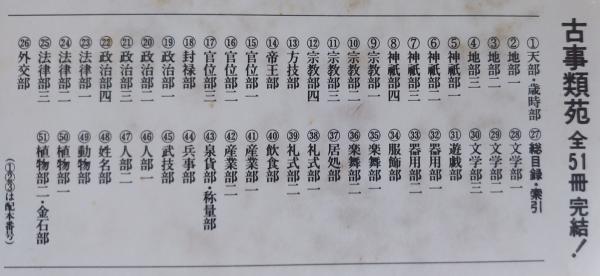 古事類苑 全51冊 完結!
①天部・歳時部
②地部一
③地部二
④地部三
⑤神祇部一
⑥神祇部二
⑦神祇部三
⑧神祇部四
⑨宗教部一
⑩宗教部二
⑪宗教部三
⑫宗教部四
⑬方技部
⑭帝王部
⑮官位部一
⑯官位部二
⑰官位部三
⑱封禄部
⑲政治部一
⑳政治部二
㉑政治部三
㉒政治部四
㉓法律部一
㉔法律部二
㉕法律部三
㉖外交部
㉗総目録・索引
㉘文学部一
㉙文学部二
㉚文学部三
㉛遊戯部
㉜器用部一
㉝器用部二
㉞服飾部
㉟楽舞部一
㊱楽舞部二
㊲居処部
㊳礼式部一
㊴礼式部二
㊵飲食部
㊶産業部一
㊷産業部二
㊸泉貨部・称量部
㊹兵事部
㊺武技部
㊻人部一
㊼人部二
㊽姓名部
㊾動物部
㊿植物部一
51植物部二・金石部
(①②③は配本番号)